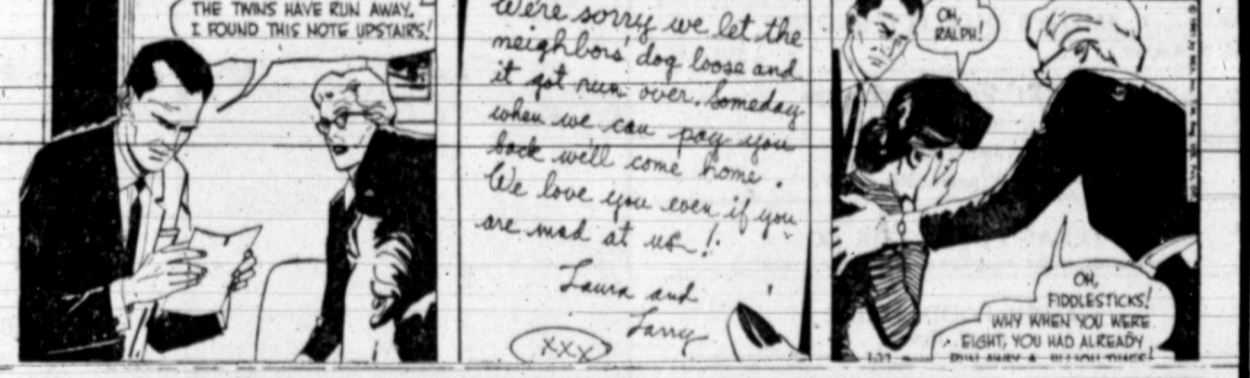 THE TWINS HAVE RUN AWAY.
I FOUND THIS NOTE UPSTAIRS!
We're sorry we let the
neighbors' dog loose and
it got run over. Someday
when we can pay you
back we'll come home.
We love you even if you
are mad at us!
Laura and
Larry
XXX
OH,
RALPH!
OH,
FIDDLESTICKS!
WHY WHEN YOU WERE
EIGHT, YOU HAD ALREADY
RUN AWAY A JILLION TIMES!
1-27